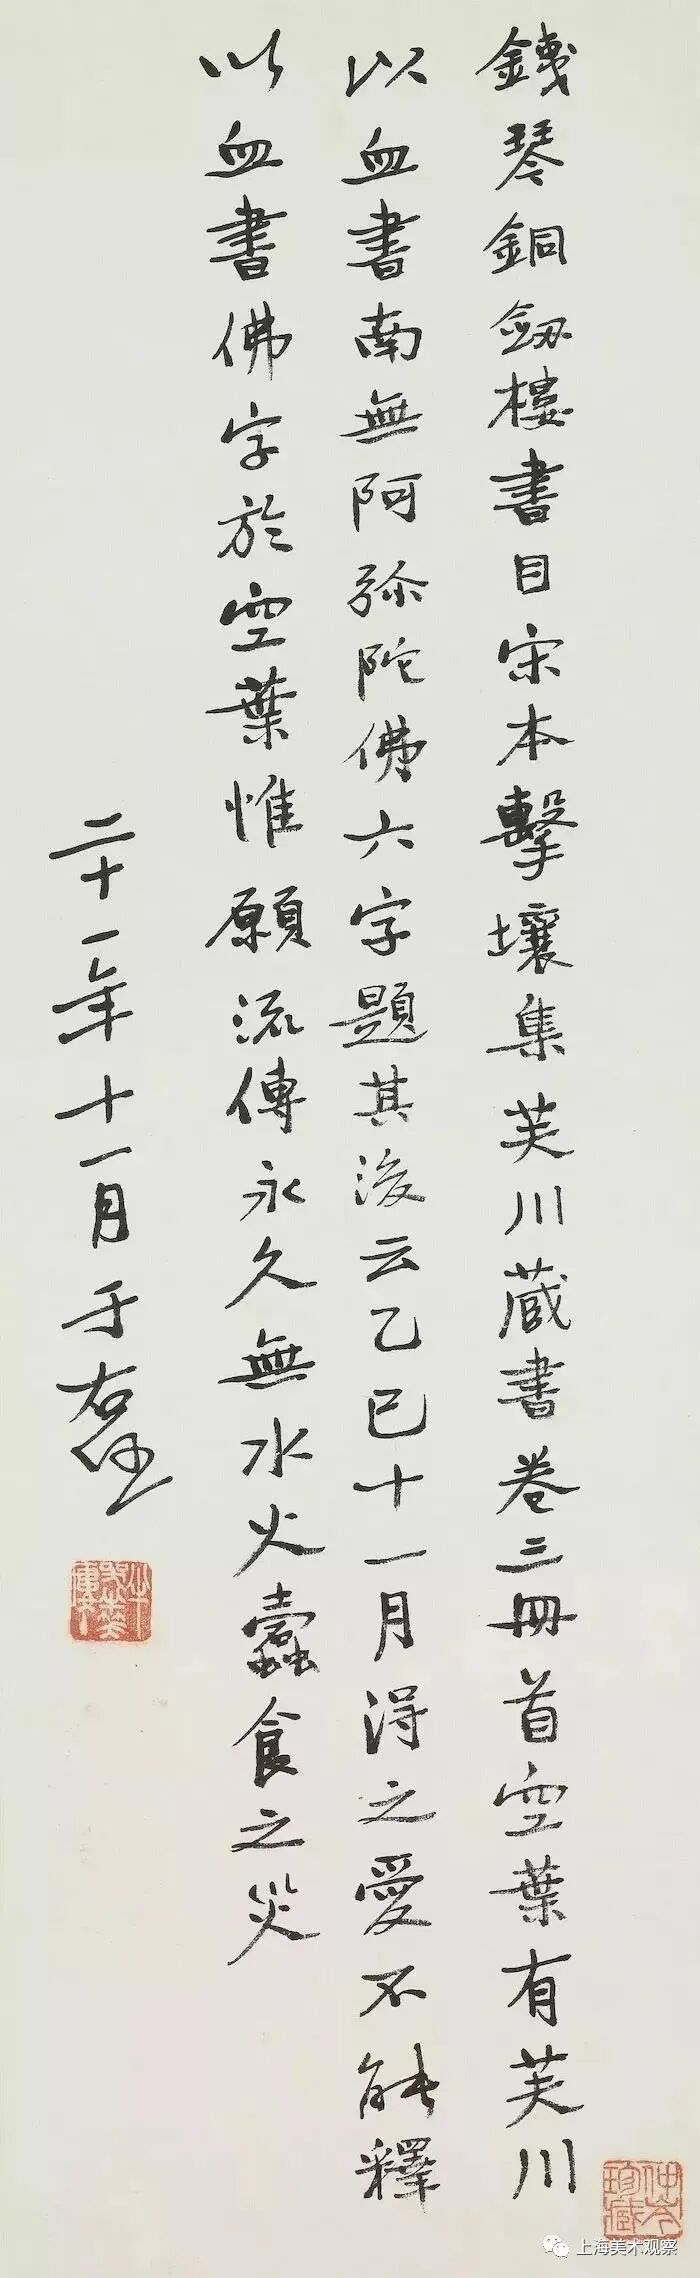 鐵琴銅劒樓書目宋本擊壤集芙川藏書卷三冊首空葉有芙川
以血書南無阿弥陀佛六字題其後云乙巳十一月得之愛不能釋
以血書佛字於空葉惟願流傳永久無水火蠹食之災
二十一年十一月于右任
珍藏
上海美术观察